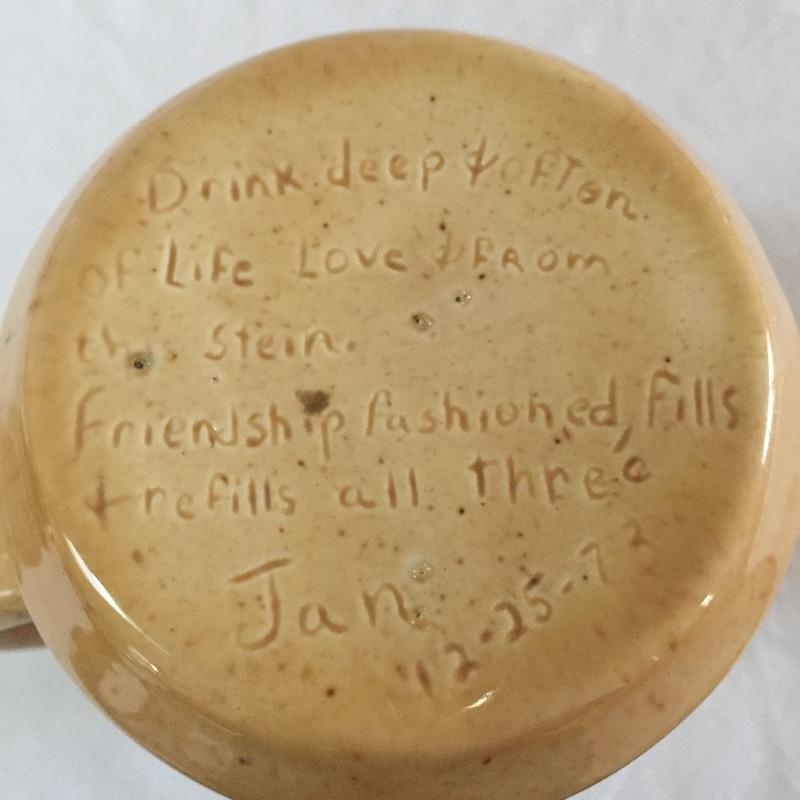 Drink deep & often
of Life Love & FRom
this Stein.
Friendship fashioned, Fills
& refills all three
Jan
12-25-73